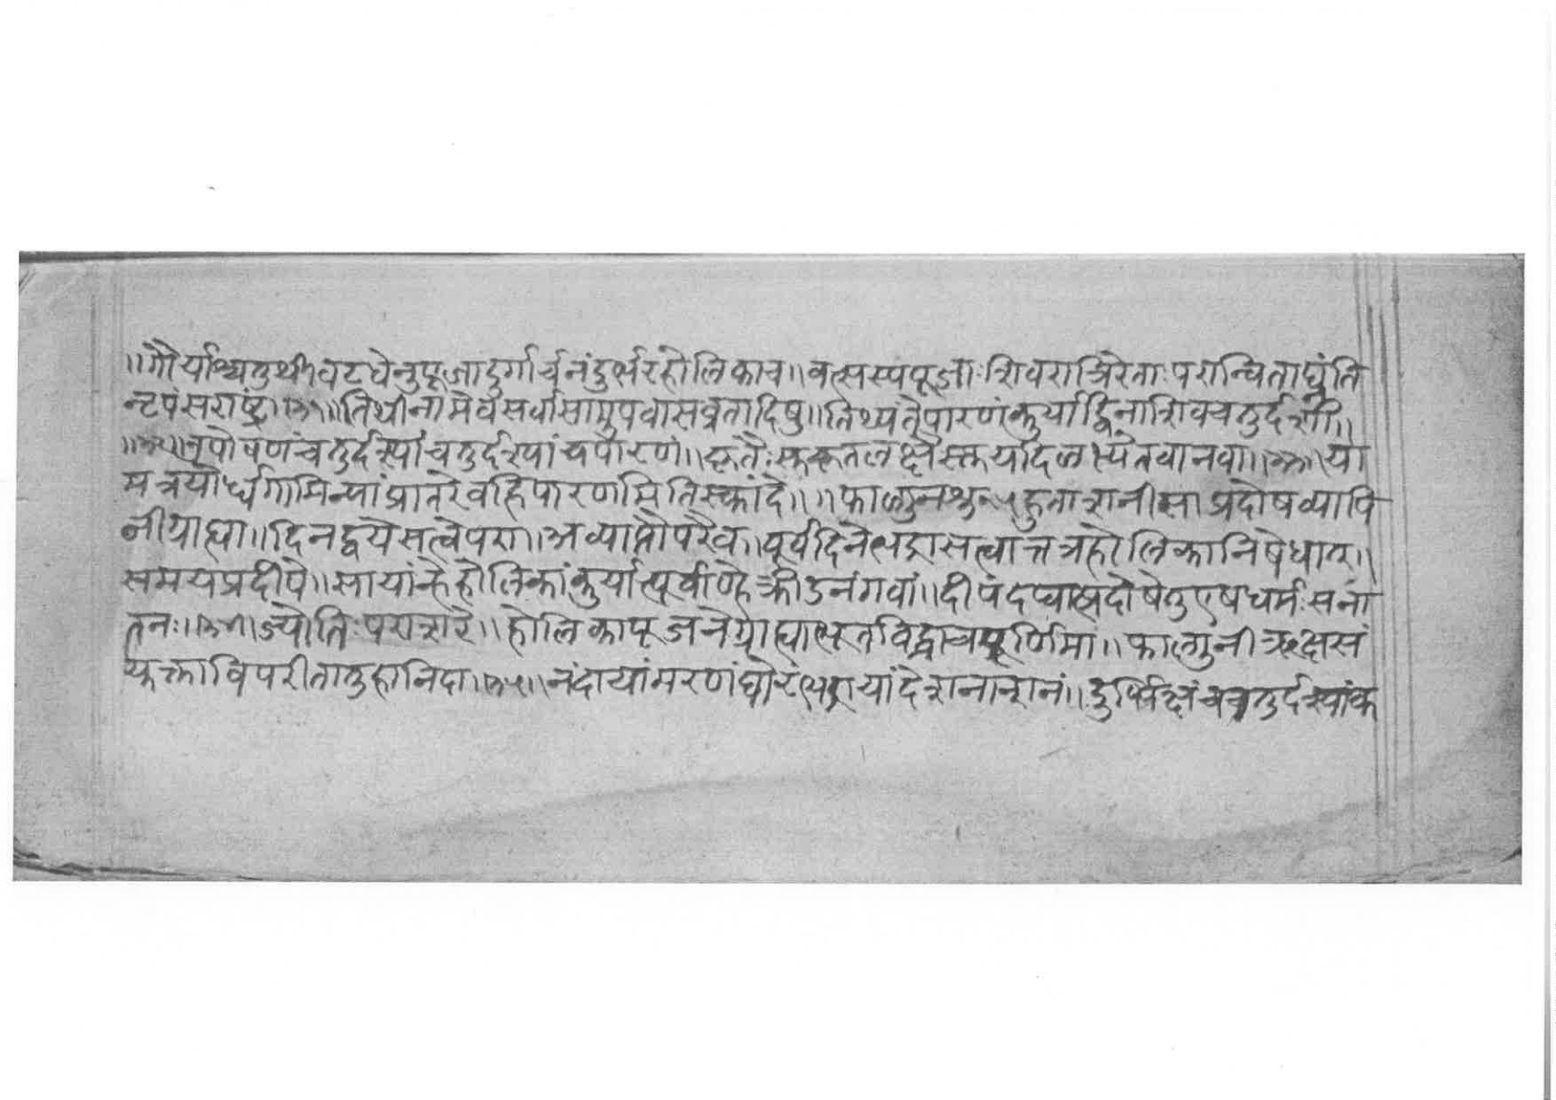 ॥गौर्याश्चतुर्थीवटधेनुपूजादुर्गार्चनंदुर्भरहोलिकाच॥वत्सस्यपूजाःशिवरात्रिरेताःपरान्विताघ्नंति
नृपंसराष्ट्रं॥ ॥तिथीनामेवसर्वासामुपवासव्रतादिषु॥तिथ्यंतेपारणंकुर्याद्विनाशिवचतुर्दशीं॥
व्रपोषणंचतुर्दश्यांचतुर्दश्यांचपारणं॥ ॥या
मत्रयोर्ध्वगामिन्यांप्रातरेवहिपारणमितिस्कांदे॥॥फाल्गुनशु हुताशनीसाप्रदोषव्यापि
नीग्राह्या॥दिनद्वयेसत्वेपरा॥अव्याप्तौपरैव॥पूर्वदिनेभद्रासत्वात्तत्रहोलिकानिषेधात्॥
समयप्रदीपे॥सायांन्हेहोलिकांकुर्यात्पूर्वाण्हेक्रीडनंगवां॥दीपंदद्यात्प्रदोषेतुएषधर्मःसना
तनः॥ ॥ज्योतिःपराशरे॥होलिकापूजनेग्राह्याभूतविद्धाचपूर्णिमा॥फाल्गुनीऋक्षसं
युक्ताविपरीतातुहानिदा॥ ॥नंदायांमरणंघोरंभद्रायांदेशनाशनं॥दुर्भिक्षंचचतुर्दश्यांक